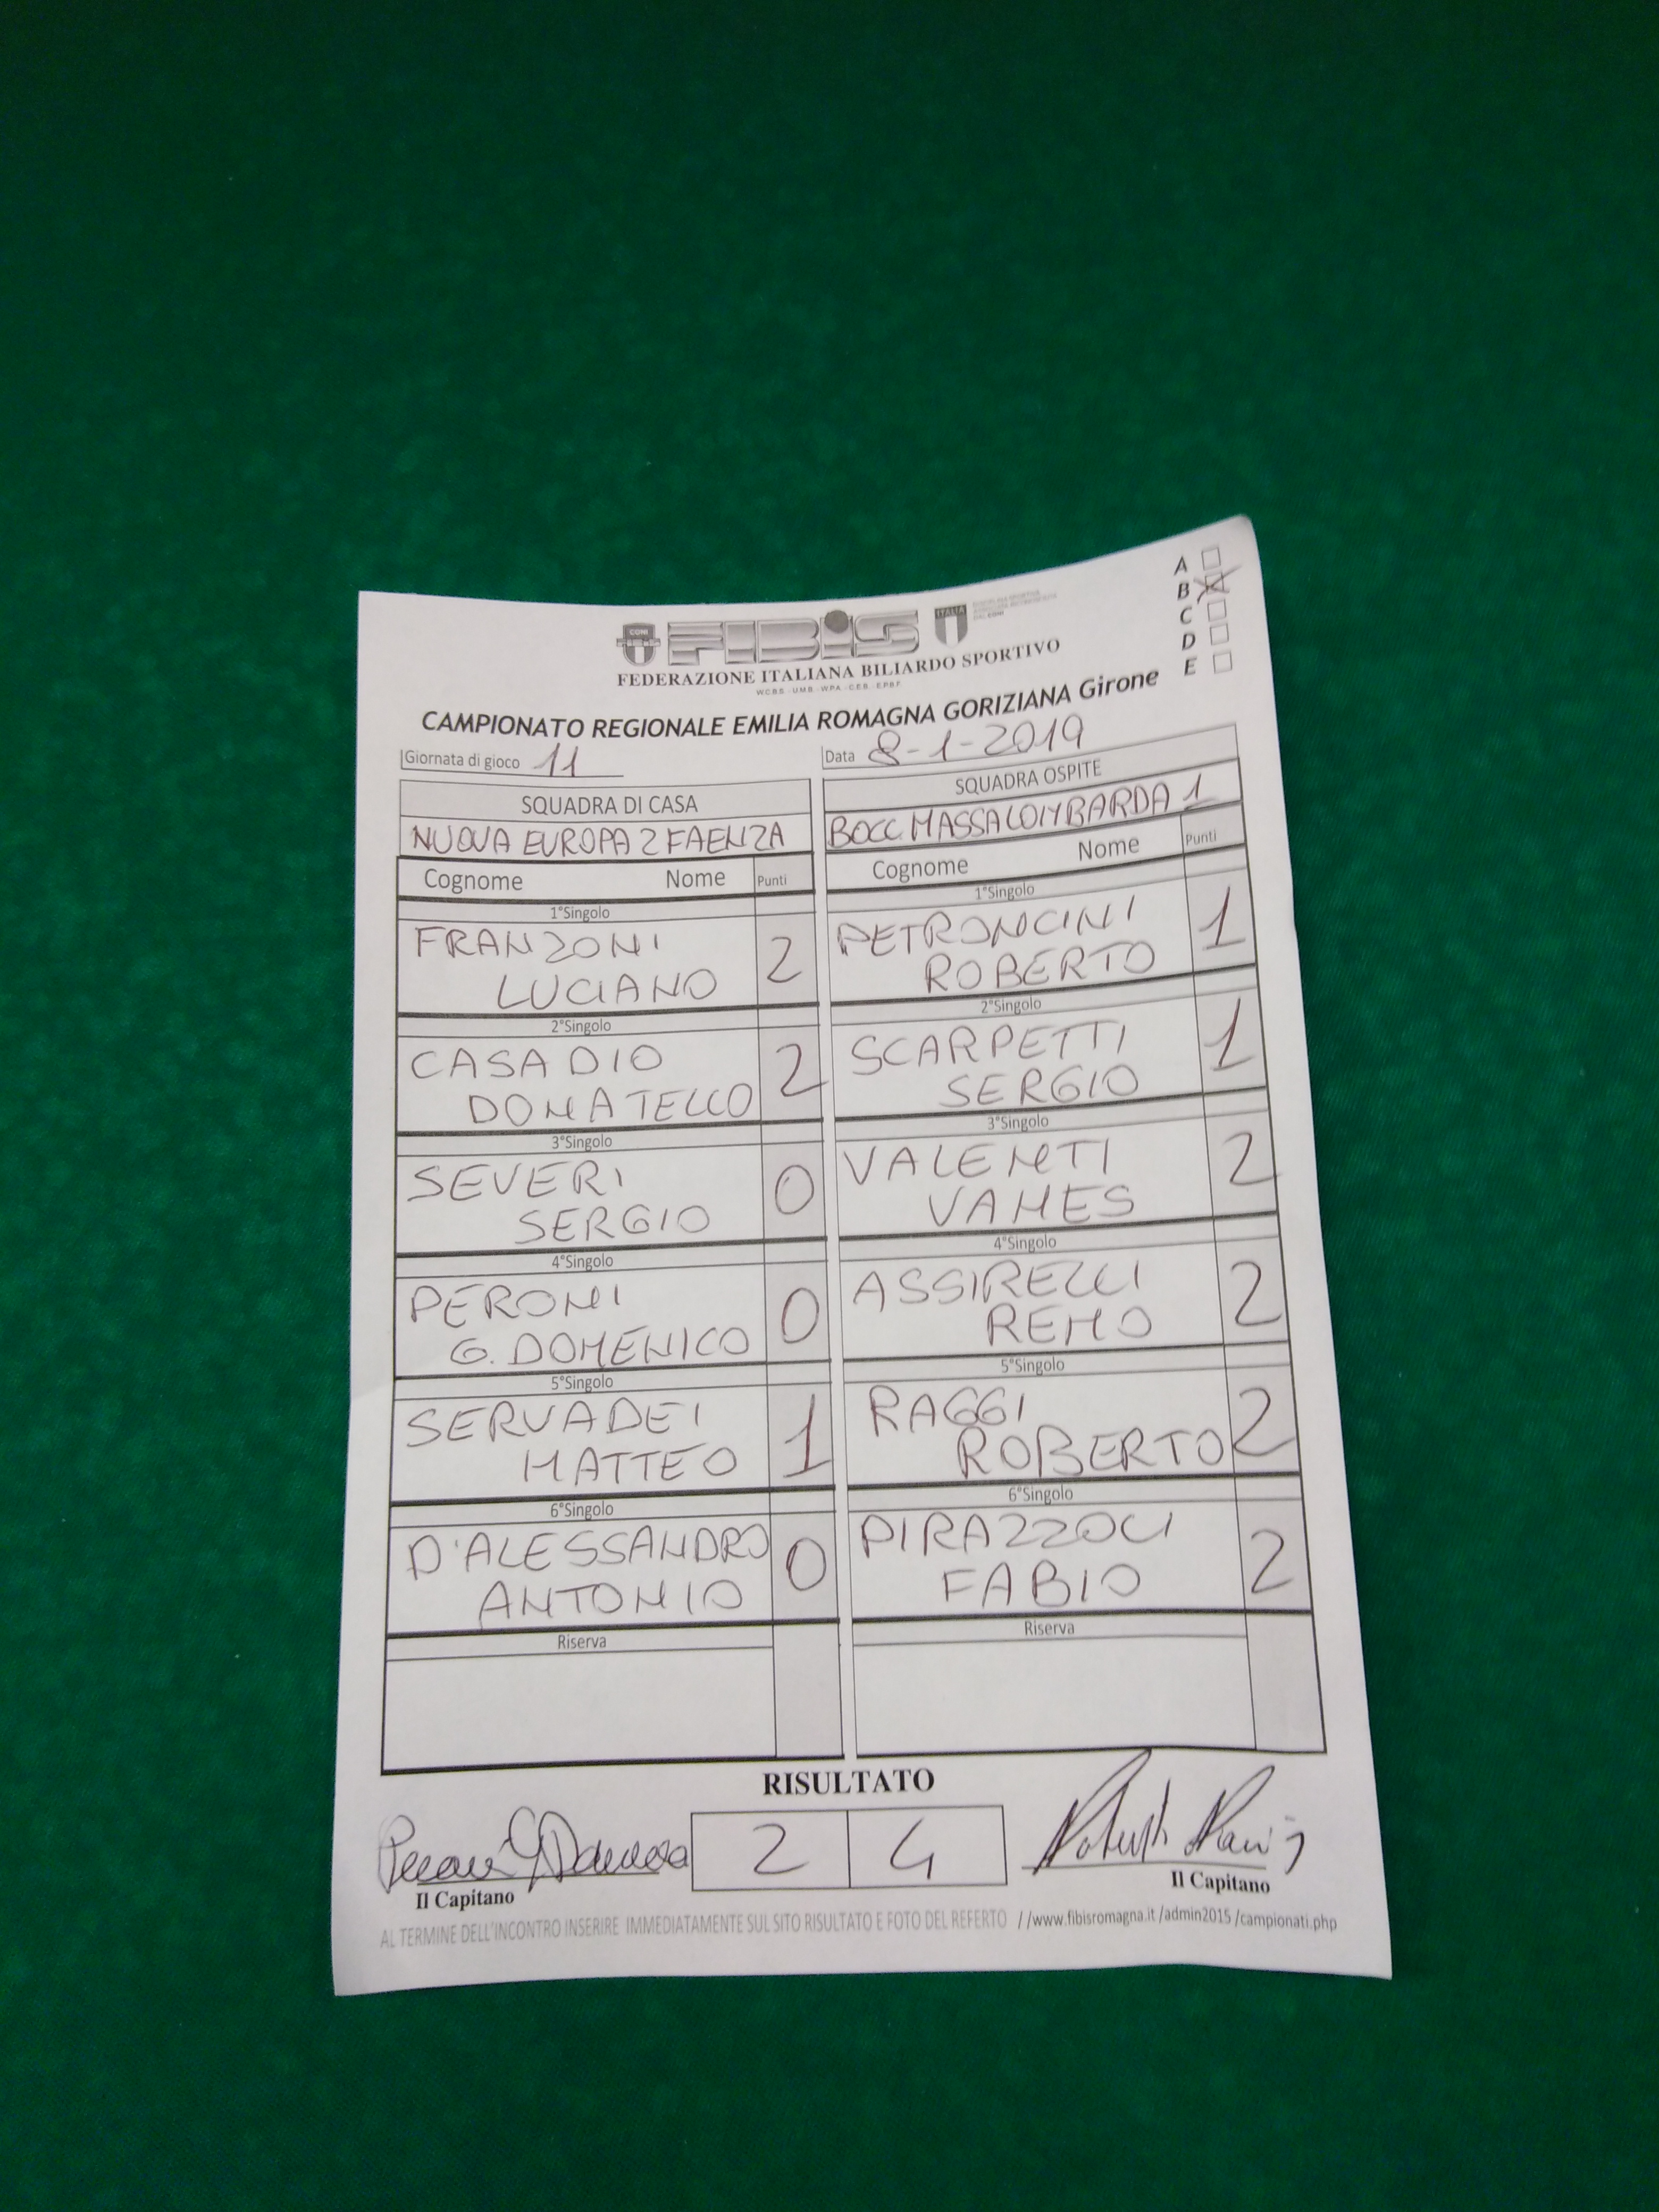 A
B
C
D
E
CONI
FIBiS
ITALIA
FEDERAZIONE ITALIANA BILIARDO SPORTIVO
W.C.B.S. - U.M.B. - W.P.A. - C.E.B. - E.P.B.F.
CAMPIONATO REGIONALE EMILIA ROMAGNA GORIZIANA Girone
Giornata di gioco 11 Data 8-1-2019
SQUADRA DI CASA SQUADRA OSPITE
NUOVA EUROPA 2 FAENZA BOCC MASSALOMBARDA 1
Cognome Nome Punti Cognome Nome Punti
1°Singolo 1°Singolo
FRANZONI 2 PETRONCINI 1
LUCIANO ROBERTO
2°Singolo 2°Singolo
CASADIO 2 SCARPETTI 1
DONATELLO SERGIO
3°Singolo 3°Singolo
SEVERI 0 VALENTI 2
SERGIO VAMES
4°Singolo 4°Singolo
PERONI 0 ASSIRELLI 2
G. DOMENICO REMO
5°Singolo 5°Singolo
SERVADEI 1 RAGGI 2
MATTEO ROBERTO
6°Singolo 6°Singolo
D'ALESSANDRO 0 PIRAZZOLI 2
ANTONIO FABIO
Riserva Riserva
RISULTATO
2 4
Il Capitano Il Capitano
AL TERMINE DELL'INCONTRO INSERIRE IMMEDIATAMENTE SUL SITO RISULTATO E FOTO DEL REFERTO //www.fibisromagna.it /admin2015 /campionati.php